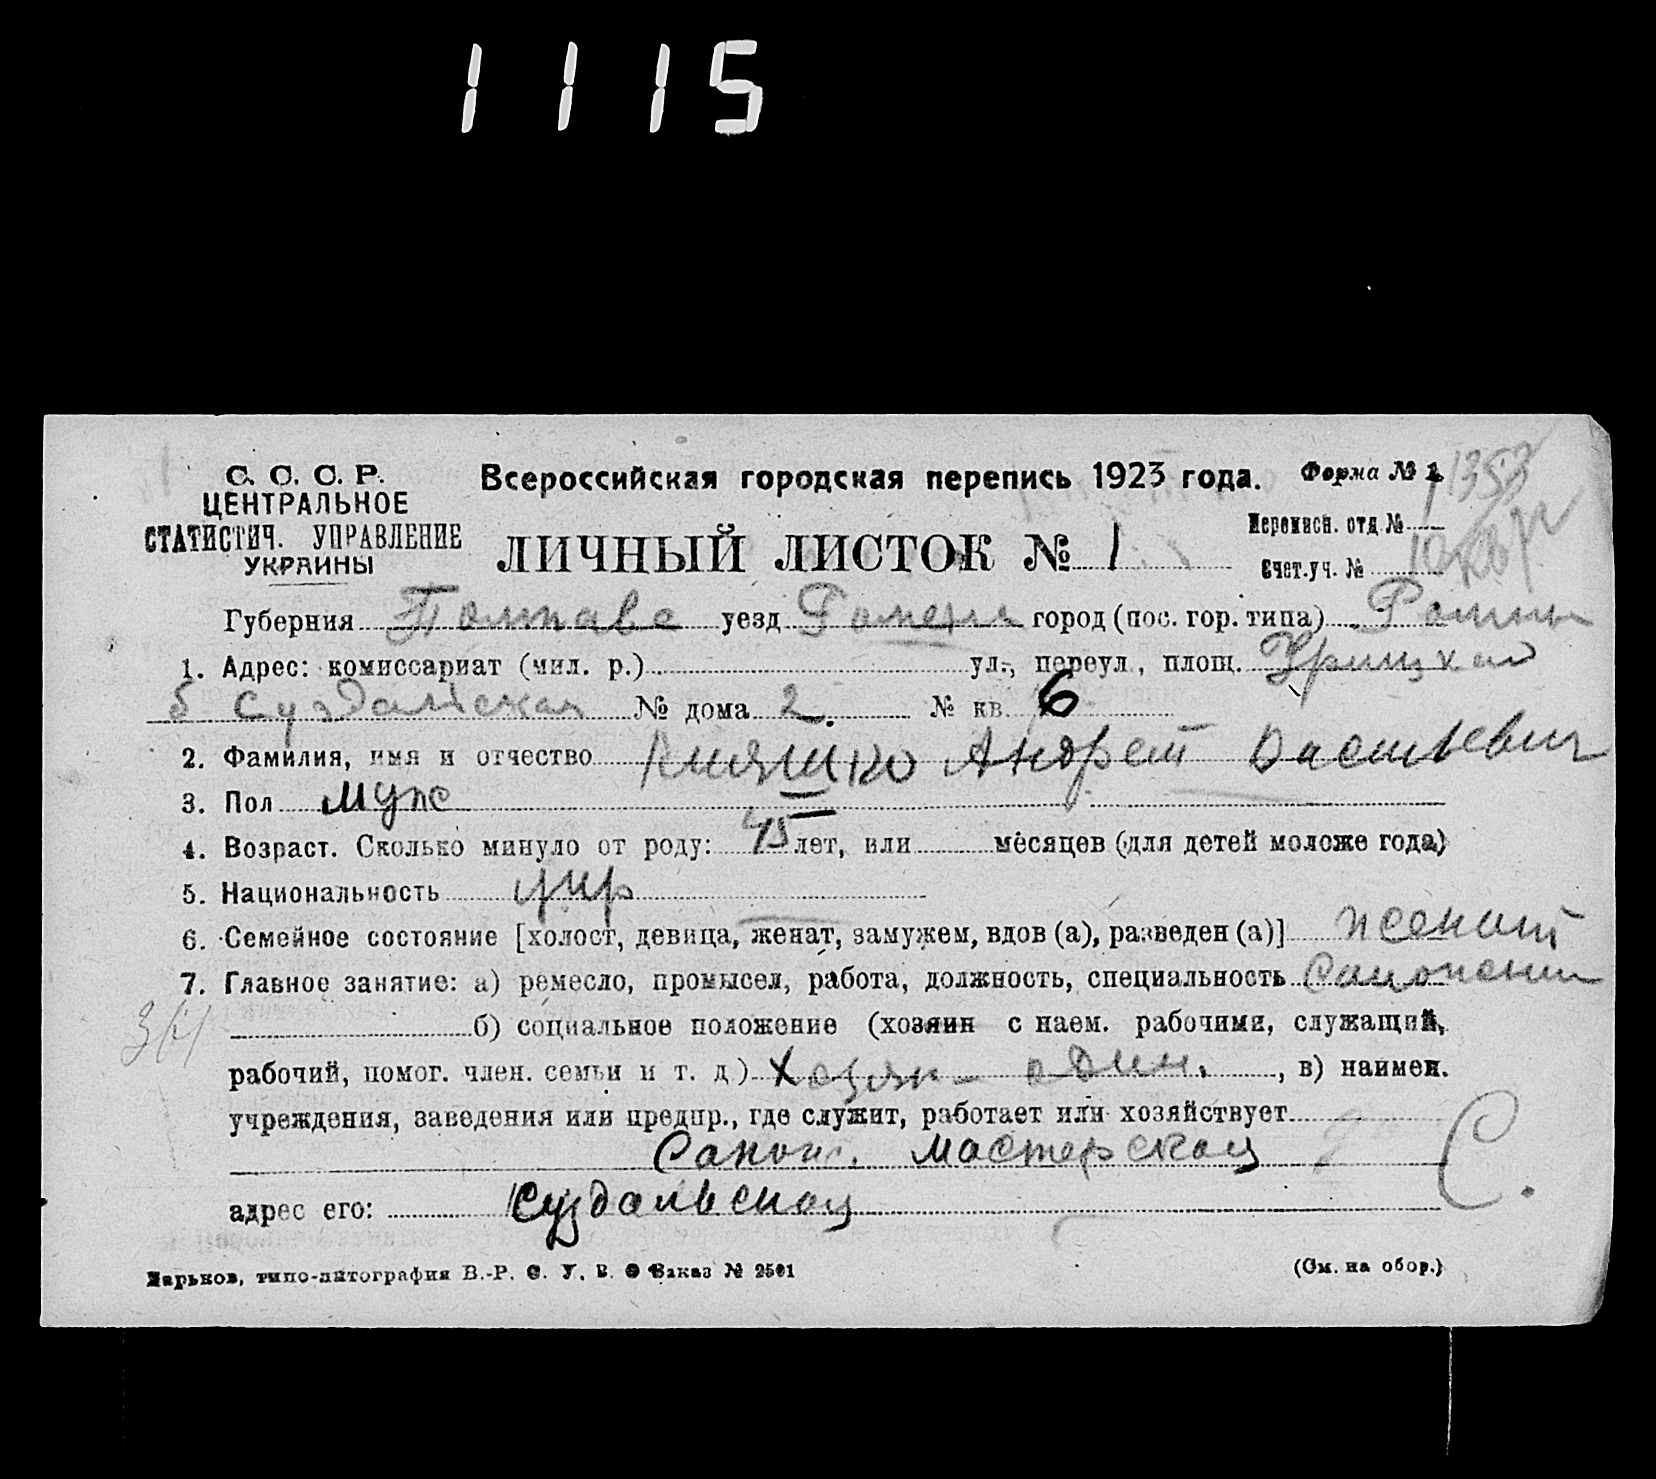 1115
С. С. С. Р.
ЦЕНТРАЛЬНОЕ
СТАТИСТИЧ. УПРАВЛЕНИЕ
УКРАИНЫ
Всероссийская городская перепись 1923 года.
Форма № 1.
1353
ЛИЧНЫЙ ЛИСТОК № 1
Переписн. отд. №
Счет. уч. № 10
Губерния Полтавс уезд Роменск город (пос. гор. типа) Ромны
1. Адрес: комиссариат (мил. р.) ул., переул., площ. Урицкая
б Суздальская № дома 2. № кв. 6
2. Фамилия, имя и отчество Андрей Васильевич
3. Пол муж
4. Возраст. Сколько минуло от роду: 45 лет, или месяцев (для детей моложе года)
5. Национальность укр
6. Семейное состояние [холост, девица, женат, замужем, вдов (а), разведен (а)] женат
7. Главное занятие: а) ремесло, промысел, работа, должность, специальность Сапожник
б) социальное положение (хозяин с наем. рабочими, служащий,
рабочий, помог. член. семьи и т. д) Хозяин один. , в) наимен.
учреждения, заведения или предпр., где служит, работает или хозяйствует
Сапож. мастерская
С.
адрес его: Суздальская
Харьков, типо-литография В.-Р. Заказ № 2501
(См. на обор.)